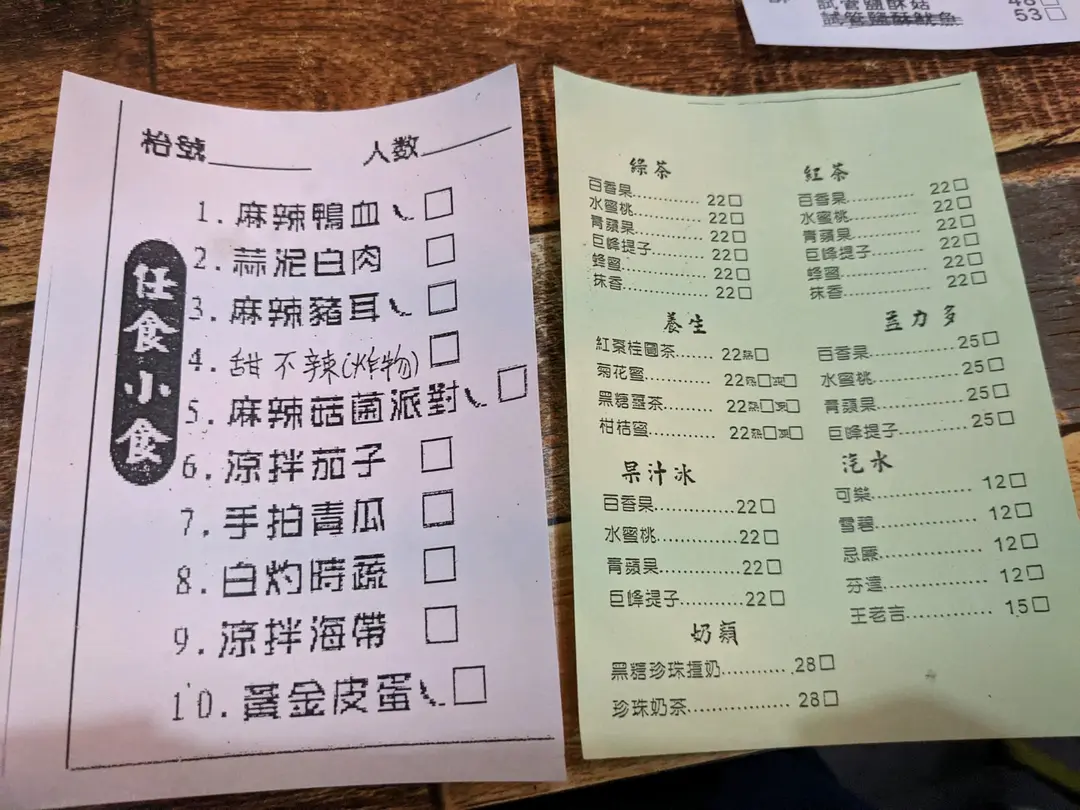 試管鹽酥菇 48□
試管鹽酥魷魚 53□
枱號______ 人数______
任食小食
1. 麻辣鴨血 □
2. 蒜泥白肉 □
3. 麻辣豬耳 □
4. 甜不辣(炸物) □
5. 麻辣菇菌派對 □
6. 涼拌茄子 □
7. 手拍青瓜 □
8. 白灼時蔬 □
9. 涼拌海帶 □
10. 黃金皮蛋 □
綠茶
百香果........... 22□
水蜜桃........... 22□
青蘋果........... 22□
巨峰提子........... 22□
蜂蜜........... 22□
抹香........... 22□
紅茶
百香果........... 22□
水蜜桃........... 22□
青蘋果........... 22□
巨峰提子........... 22□
蜂蜜........... 22□
抹香........... 22□
養生
紅棗桂圓茶...... 22熱□
菊花蜜........... 22熱□凍□
黑糖薑茶........... 22熱□凍□
柑桔蜜........... 22熱□凍□
益力多
百香果........... 25□
水蜜桃........... 25□
青蘋果........... 25□
巨峰提子........... 25□
果汁冰
百香果........... 22□
水蜜桃........... 22□
青蘋果........... 22□
巨峰提子........... 22□
汽水
可樂........... 12□
雪碧........... 12□
忌廉........... 12□
芬達........... 12□
王老吉........... 15□
奶類
黑糖珍珠撞奶........... 28□
珍珠奶茶........... 28□